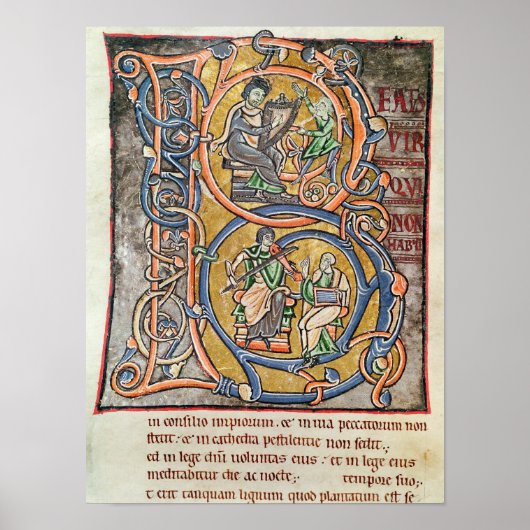 B
EATS
VIR
QVI
NON
HABIIT
in consilio impiorum. & in uia peccatorum non
stetit: & in cathedra pestilentie non sedit.
ed in lege dñi uoluntas eius: et in lege eius
meditabitur die ac nocte; tempore suo;
t erit tanquam lignum quod plantatum est se